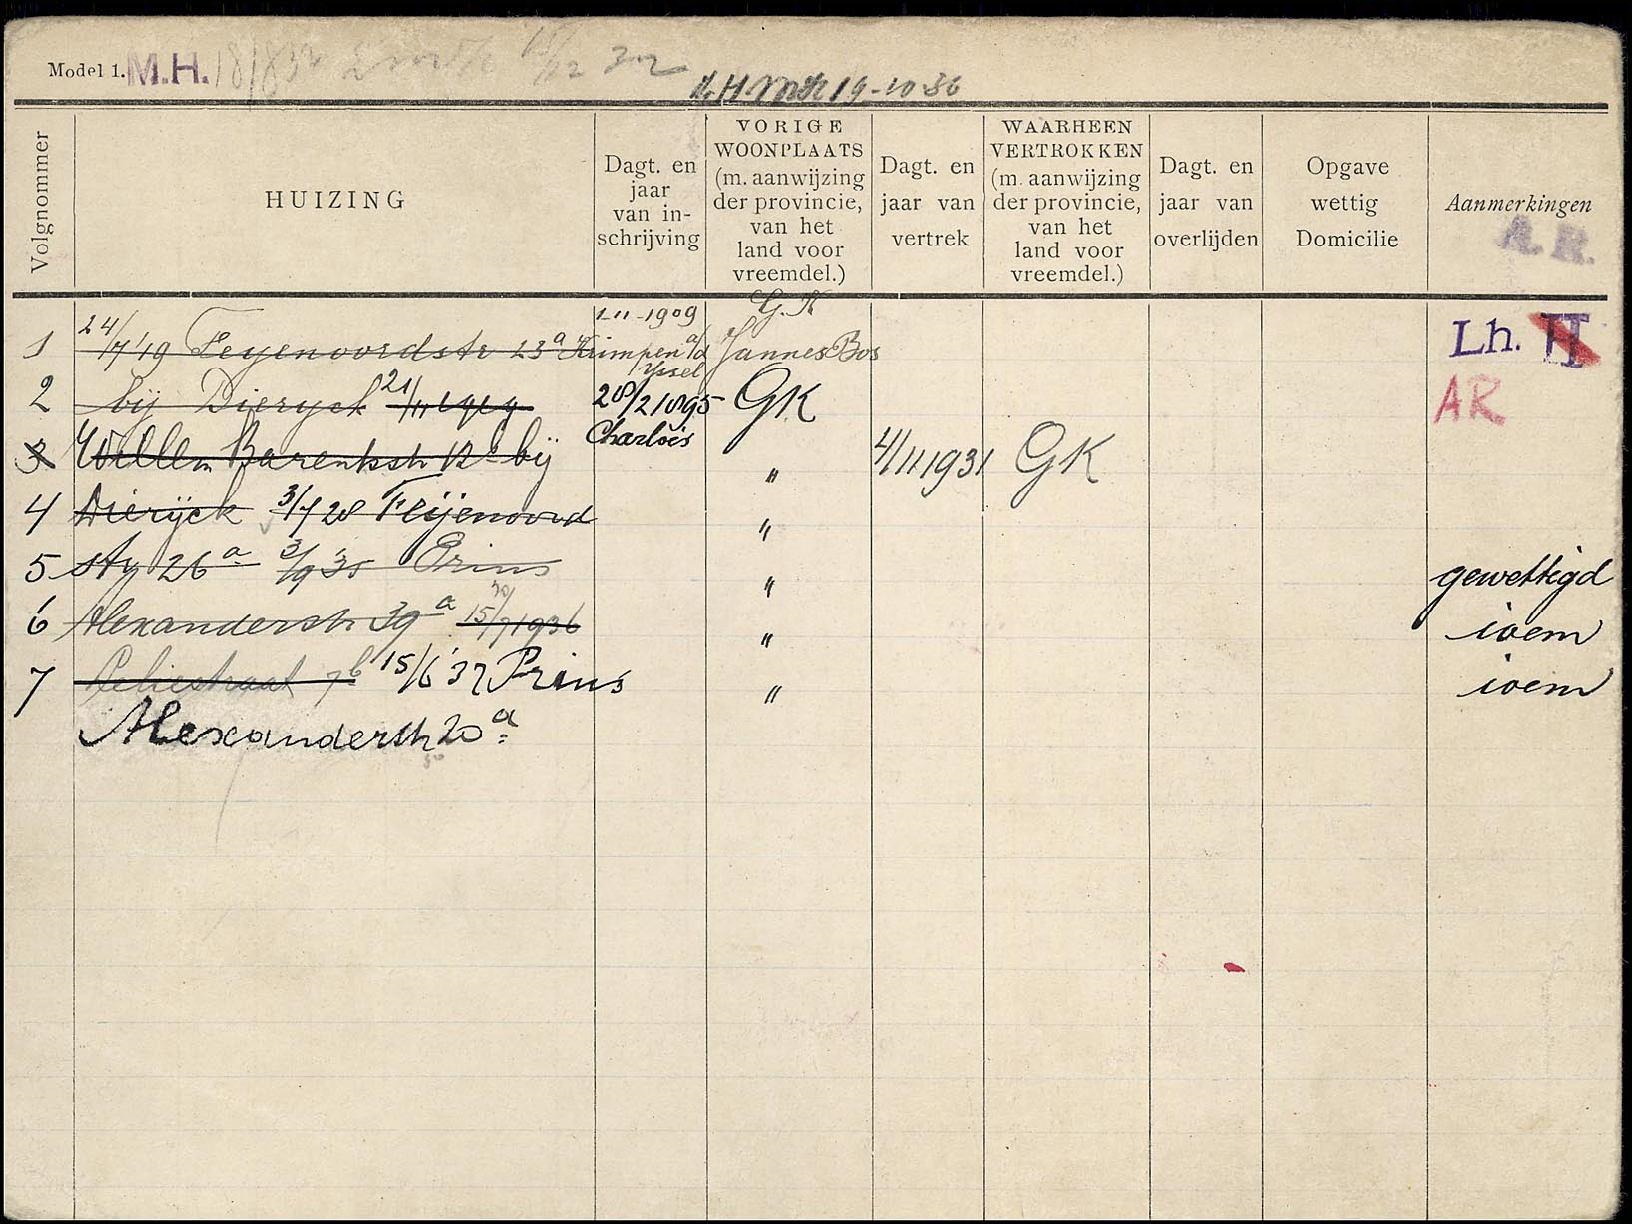 Model 1. M.H. 18/832
19-10-36
Volgnommer
HUIZING
Dagt. en jaar van in-schrijving
VORIGE WOONPLAATS (m. aanwijzing der provincie, van het land voor vreemdel.)
Dagt. en jaar van vertrek
WAARHEEN VERTROKKEN (m. aanwijzing der provincie, van het land voor vreemdel.)
Dagt. en jaar van overlijden
Opgave wettig Domicilie
Aanmerkingen
A.R.
1-11-1909 G.K
1 24/7'19 Feyenoordstr 23a Krimpen a/d Yssel Jannes Bos Lh. II
2 bij Dieryck 21/11 1919 28/2 1895 GK AR
Charlois
3 Willem Barentsstr 12 bij " 4/11 1931 GK
4 Dierÿck 3/7 28 Feijenoord "
5 str 26a 3/9 35 Prins " gewettigd
6 Alexanderstr 39a 15/7 1936 " ioem
7 Peliestraat 7b 15/6 '37 Prins " ioem
Alexanderstr 20a